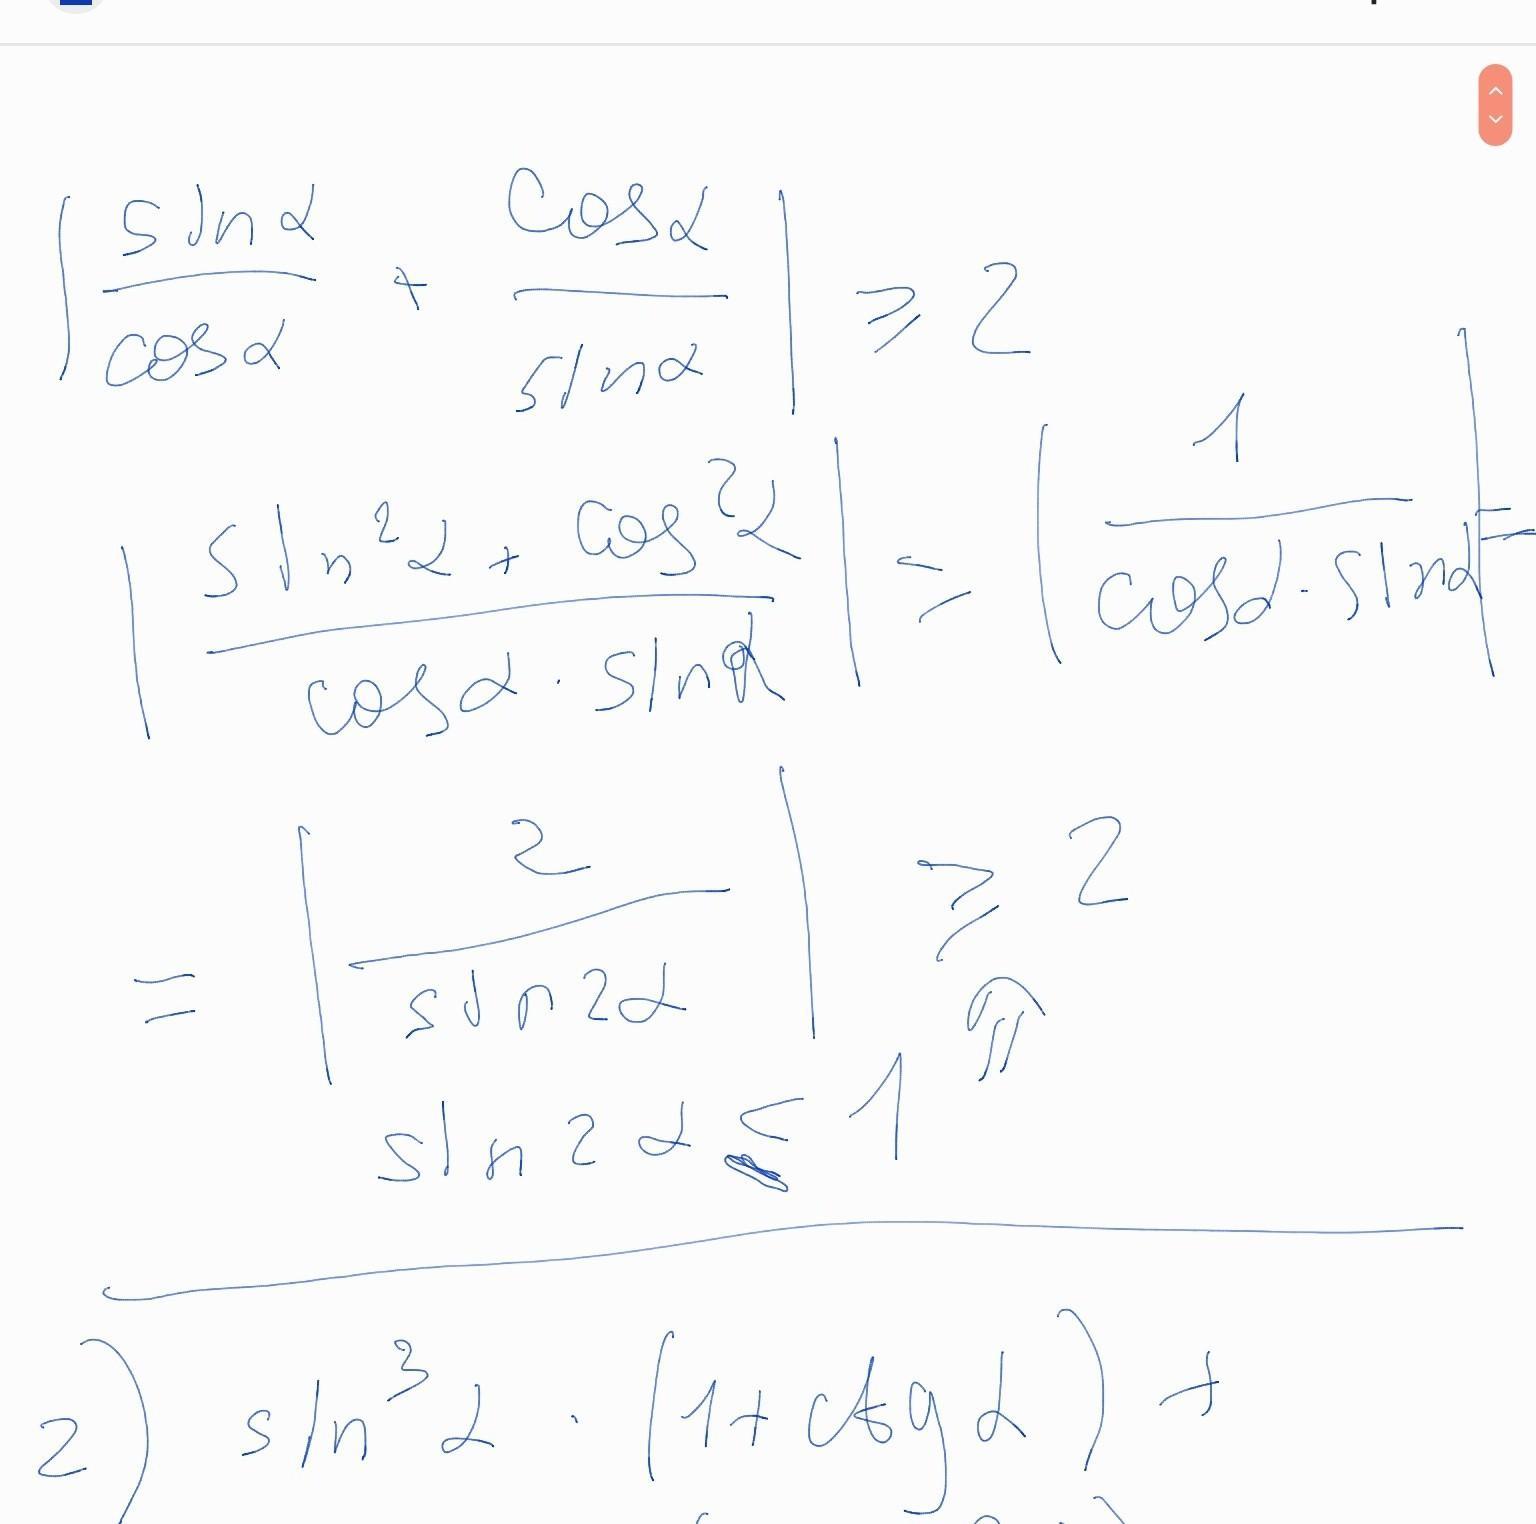 | sinα / cosα + cosα / sinα | ⩾ 2
| sin²α + cos²α / cosα · sinα | = | 1 / cosα · sinα | =
= | 2 / sin2α | ⩾ 2
⇑
sin2α ≤ 1
2) sin³α · (1 + ctgα) +